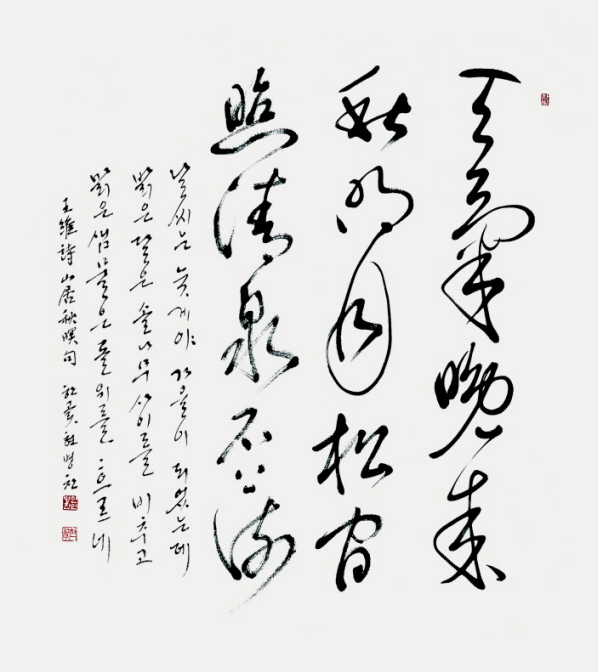 天氣晚來
秋明月松間
照清泉石上流
날씨는 늦게야 가을이 되었는데
밝은 달은 솔나무 사이를 비추고
맑은 샘물은 돌 위를 흐르네
王維詩 山居秋暝句